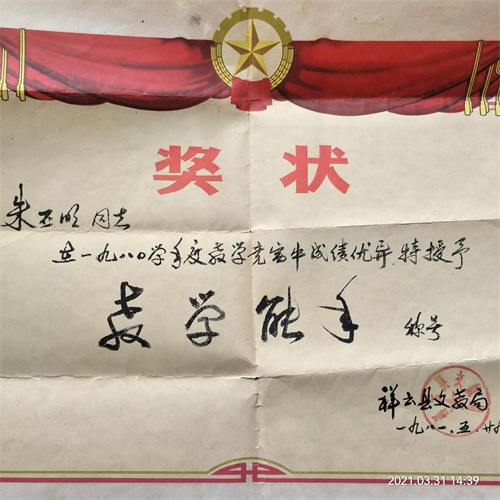 奖状
朱丕明同志
在一九八〇学年度教学竞赛中成绩优异,特授予
教学能手 称号
祥云县文教局
一九八一.五.廿
2021.03.31 14:39